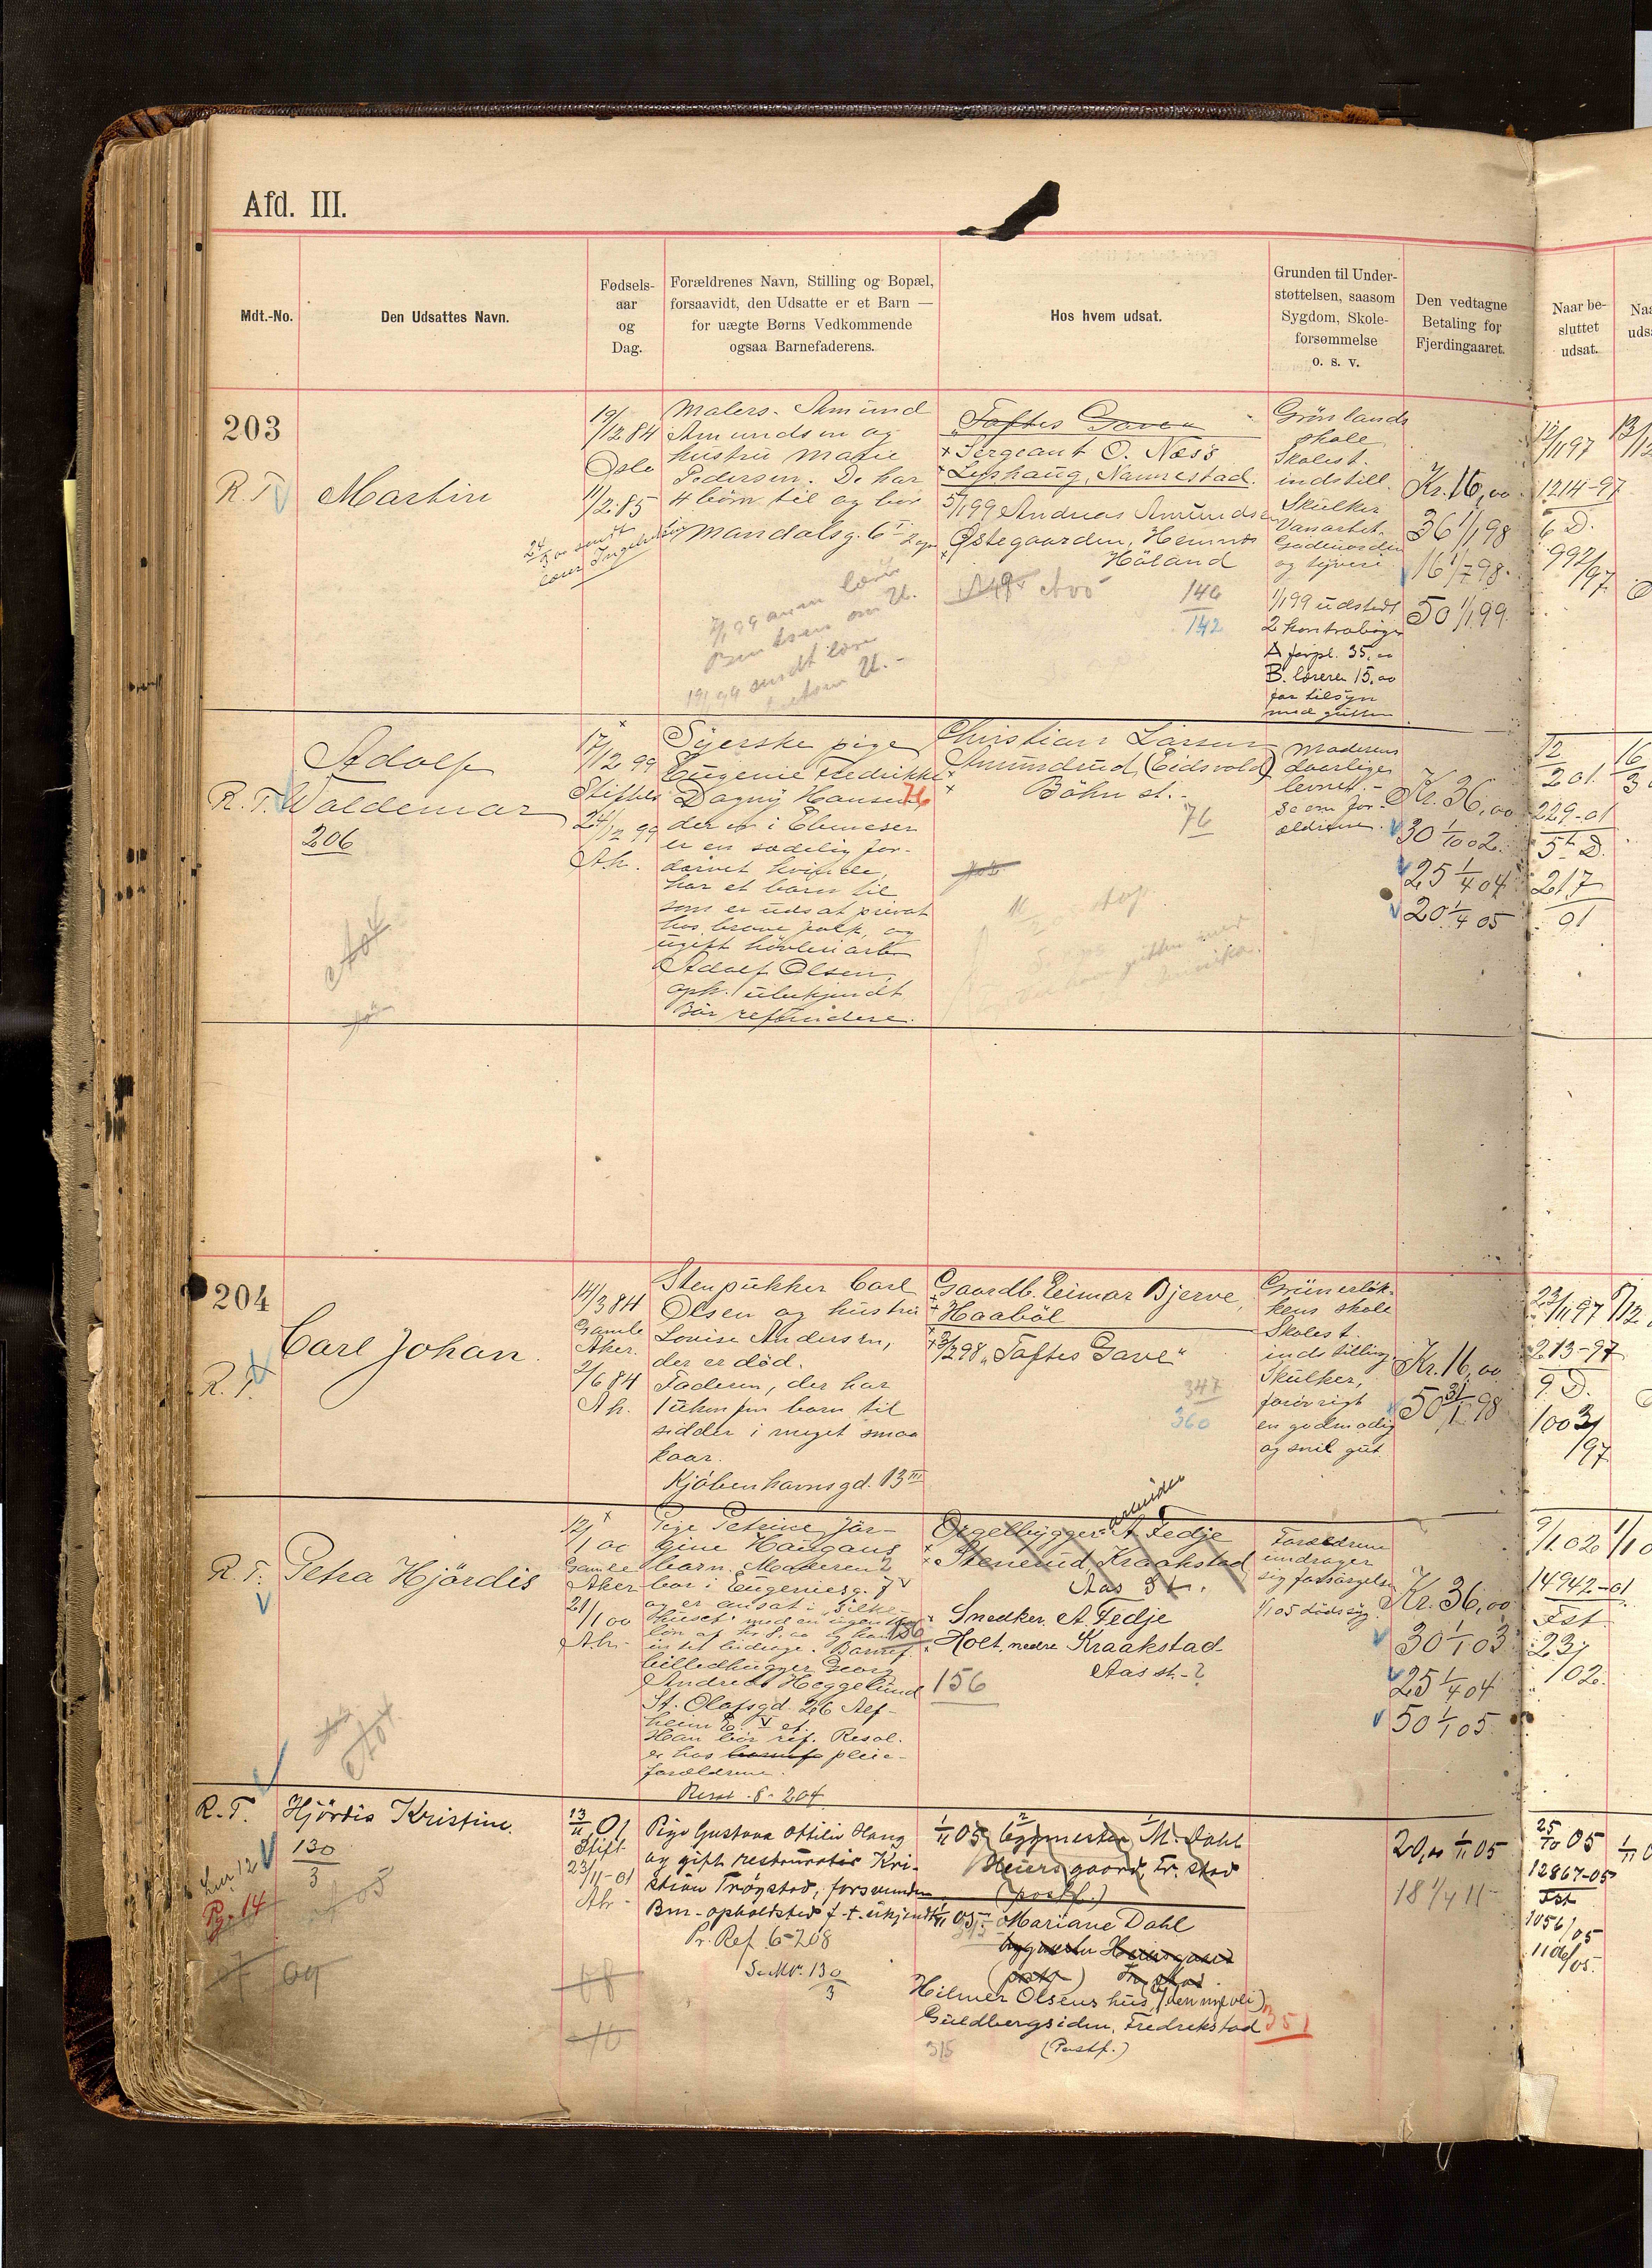 Afd. III.
Mdt.-No.
Den Udsattes Navn.
Fødsels-
aar
og
Dag.
Forældrenes Navn, Stilling og Bopæl,
forsaavidt, den Udsatte er et Barn —
for uægte Børns Vedkommende
ogsaa Barnefaderens.
Hos hvem udsat.
Grunden til Under-
støttelsen, saasom
Sygdom, Skole-
forsømmelse
o. s. v.
Den vedtagne
Betaling for
Fjerdingaaret.
Naar be-
sluttet
udsat.
203
R. T.
Martin
19/12 84
Oslo
11/2 85
Malers. Amund
Amundsen og
hustru Marie
Pedersen. De har
4 börn til og bor
Mandalsg. 6
"Toftes Gave"
Sergeant O. Næss
Leshaug, Nannestad.
5/1 99 Andreas Amundsen
Østegaarden, Hemnes
Höland
146
142
Grönlands
skole
Skolest.
indstill.
Skulker
Vanartet.
Gadeuorden
og tyveri
1/1 99 udstedt
2 kontraböger
A forpl. 35,00
B. læreren 15,00
for tilsyn
med gutten
Kr. 16,00
36 1/1 98
16 1/7 98
50 1/1 99
12/11 97
1214-97
6 D.
992/97
Adolf
R. T. Waldemar
206
17/12 99
Stiftels
24/12 99
Ah.
Syerske pige
Eugenie Fredrikke
Dagny Hansen 76
der er i Ebeneser
er en sædelig for-
dærvet kvinde,
har et barn til
som er udsat privat
hos brave folk, og
ugift hövleriarb
Adolf Olsen,
oph. ubekjendt
Bör refundere.
Christian Larsen
Amundrud (Eidsvold)
Böhn st.
76
Moderens
daarlige
levnet.
Se om for-
ældrene.
Kr. 36,00
30 1/10 02
25 1/4 04
20 1/4 05
12/2 01
229-01
5t D.
217
01
204
R. T.
Carl Johan.
14/3 84
Gamle
Aker.
2/6 84
Ah.
Stenpukker Carl
Olsen og hustru
Lovise Andersen,
der er död.
Faderen, der har
1 ukonf. barn til
sidder i meget smaa
kaar.
Kjöbenhavnsgd. 13 III
Gaardb. Eimar Bjerve,
Haaböl
3/2 98 "Toftes Gave"
347
360
Grünerløk-
kens skole
Skolest.
indstilling
Skulker,
forövrigt
en godmodig
og snil gut.
Kr. 16,00
50 31/1 98
23/11 97
213-97
9. D.
1003/97
R. T. Petra Hjördis
12/1 00
Gamle
Aker
21/1 00
Ah.
Pige Petrine Jör-
gine Haugans
barn. Moderen
bor i Eugeniesg. 7
og er ansat i "Silke-
huset" med en ugentlig
billedhugger Georg
Andreas Heggelund
St. Olafsgd. 26
Han bör ref. Resol.
er hos pleie-
forældrene.
Resol. 8 - 204
Orgelbygger arbeider A. Fedje
Stenerud, Kraakstad
Aas St.
Snedker A. Fedje
Holt nedre Kraakstad
Aas st. - ?
156
Forældrene
unddrager
sig forsörgelse
1/1 05 dødssyg
Kr. 36,00
30 1/1 03
25 1/4 04
50 1/1 05
9/1 02
14942-01
Fst
23/02
R. T. Hjördis Kristine.
130
3
Lur. 12
Pg. 14
13/11 01
Stift
23/11-01
Ah.
Pige Gustava Ottilie Haug
og gift restauratör Kri-
stian Trøgstad, forsvunden
Bm-opholdsted f. t. ukjendt
Pr. Ref. 6-208
Se Mr. 130
3
1/11 05 Bygmester M. Dahl
Heiersgaard, Fr. stad
(postf.)
1/11 05 - Mariane Dahl
bygmester Heiersgaard
(postf) Fr. stad.
Hilmer Olsens hus, (den nye vei)
Guldbergsiden, Fredrekstad 351
315
(Postf.)
20,00 1/11 05
18 1/4 11
25/10 05
12867-05
Fst
1056/05
1106/05